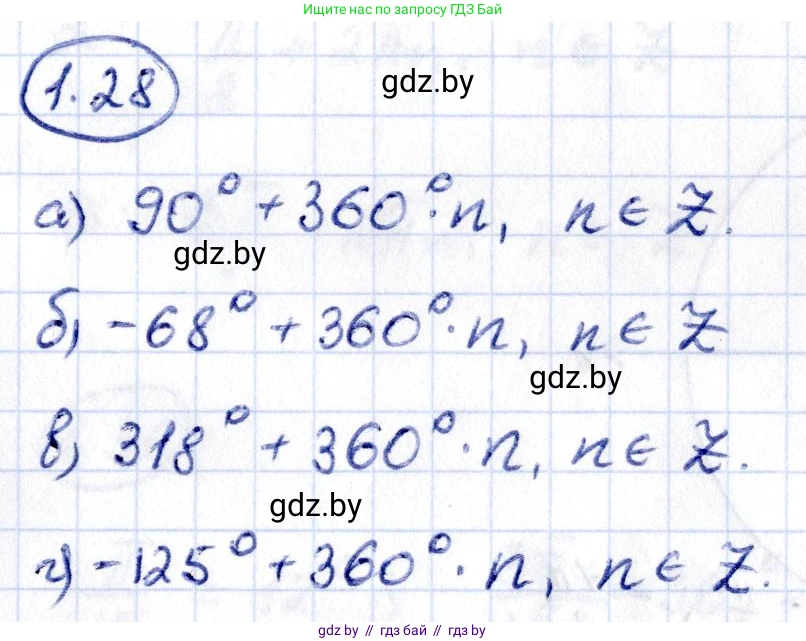 Ищите нас по запросу ГДЗ Бай
1.28
gdz.by
а) 90° + 360°·n, n ∈ Z.
gdz.by
б) -68° + 360°·n, n ∈ Z
gdz.by
в) 318° + 360°·n, n ∈ Z.
gdz.by
г) -125° + 360°·n, n ∈ Z.
gdz.by // гдз бай // gdz.by